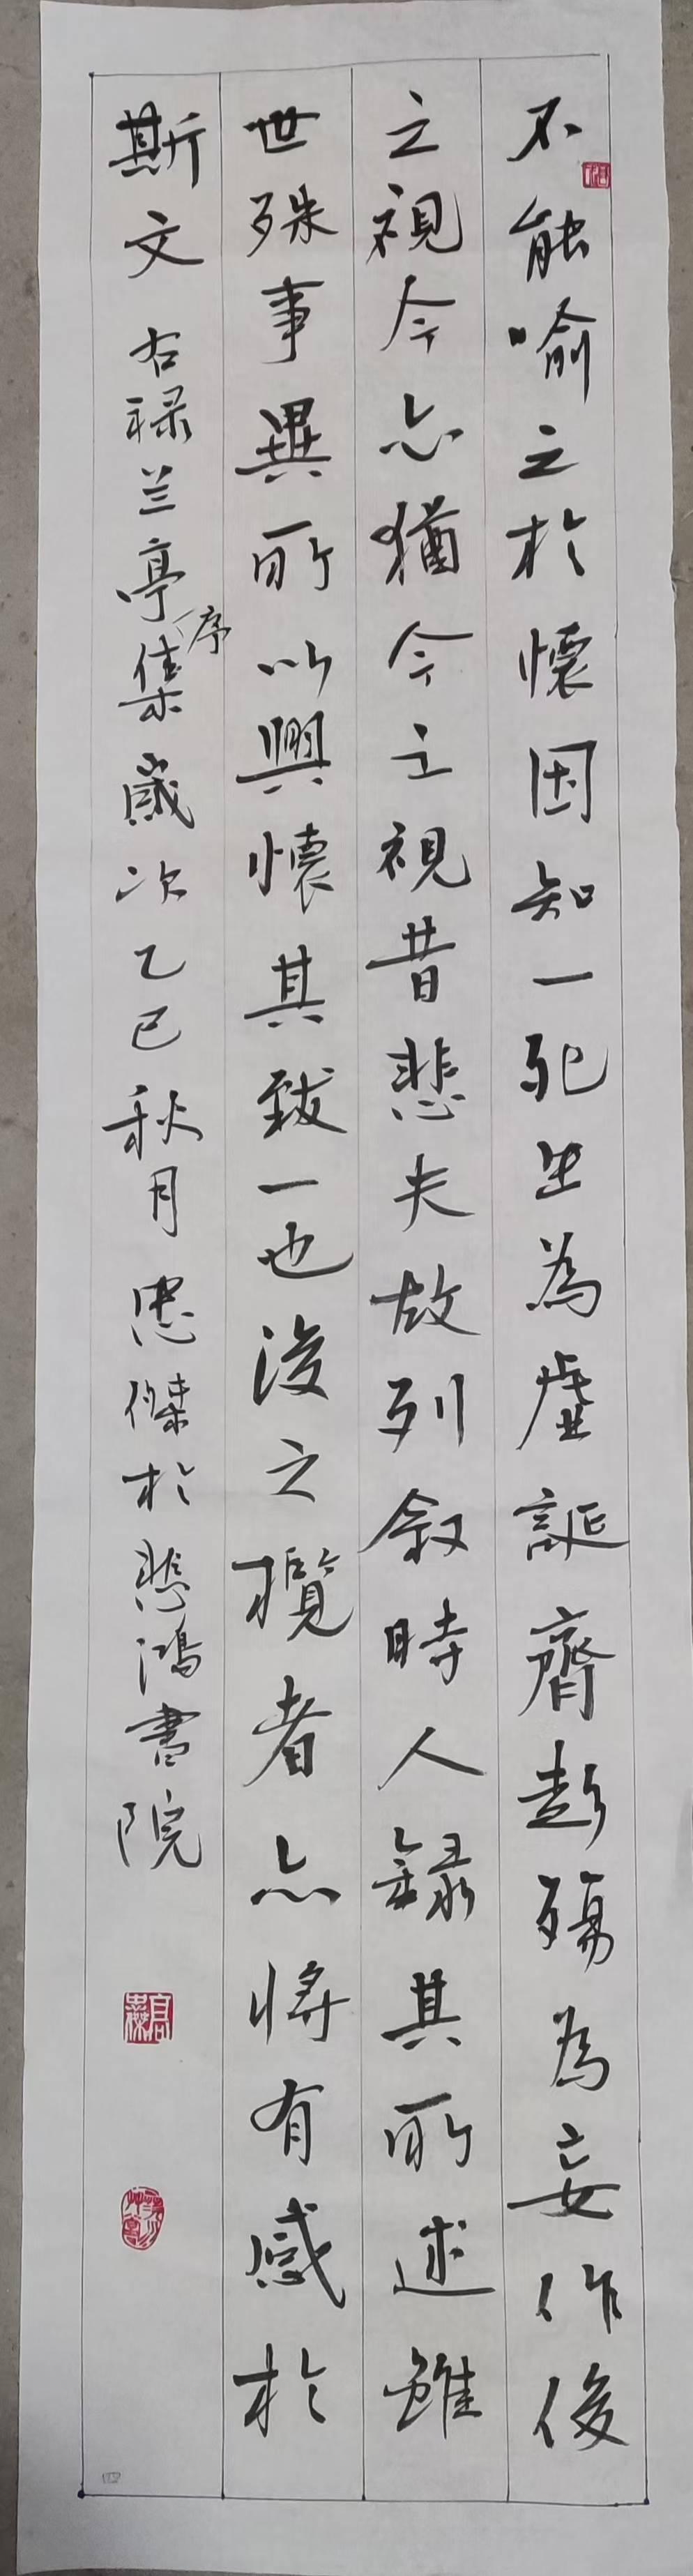 不能喻之於懷固知一死生為虛誕齊彭殤為妄作後
之視今亦猶今之視昔悲夫故列叙時人錄其所述雖
世殊事異所以興懷其致一也後之攬者亦將有感於
斯文 右禄兰亭集序 歲次乙巳秋月 忠傑於悲鴻書院